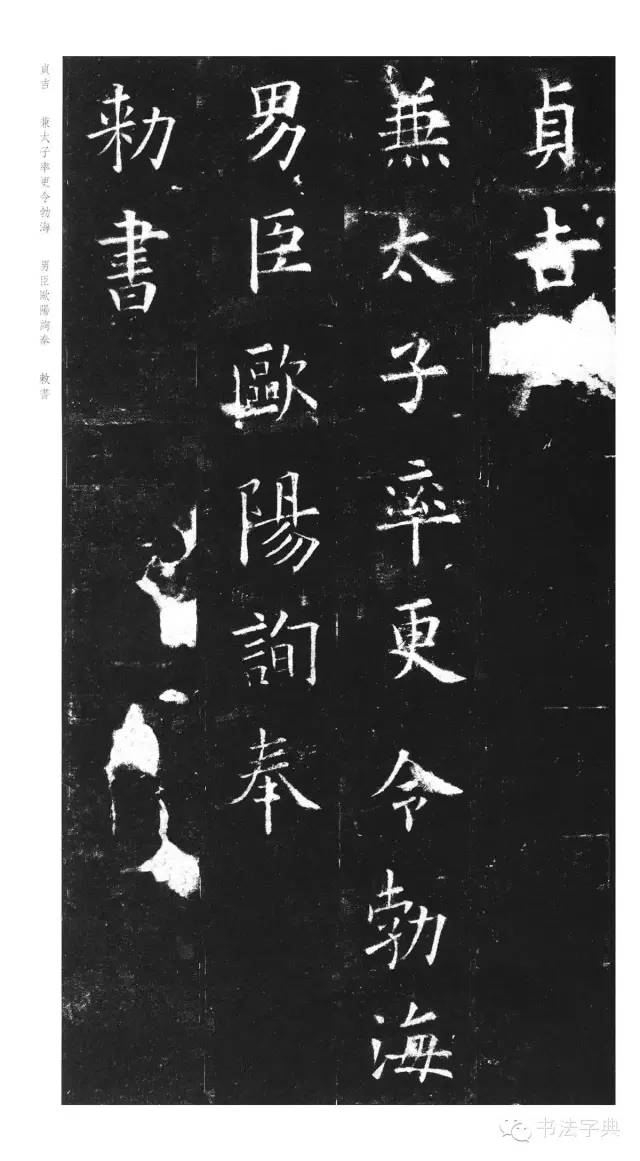 貞吉
兼太子率更令勃海
男臣歐陽詢奉
勑書
貞吉 兼太子率更令勃海 男臣歐陽詢奉 敕書
书法字典